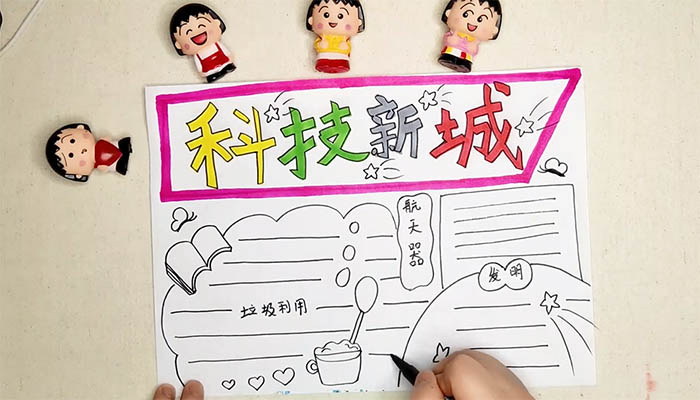 科技新城
航天器
垃圾利用
发明